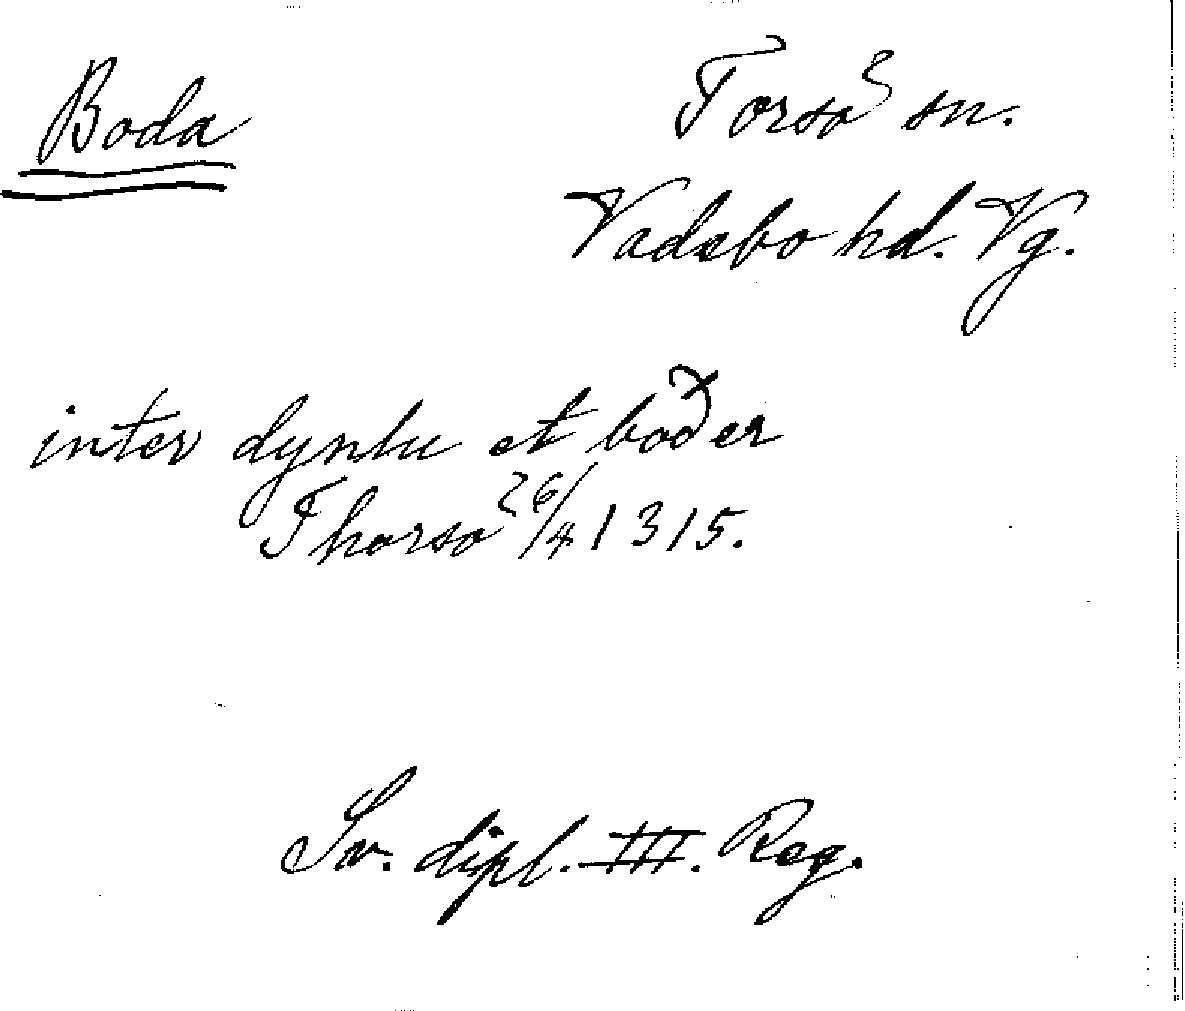 Boda
Torsö sn.
Vadsbo hd. Vg.
inter dyntu et boðer
Thorso 26/4 1315.
Sv. dipl. III. Reg.